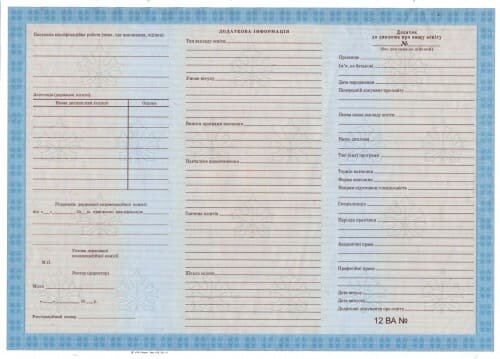 Виконана кваліфікаційна робота (тема, час виконання, оцінка)
Атестація (державні іспити)
Назва дисципліни (іспит)
Оцінка
Рішенням державної кваліфікаційної комісії
від «
р. присвоєно кваліфікацію
Голова державної
кваліфікаційної комісії
М.П.
Ректор (директор)
Місто
р.
Реєстраційний номер
ДОДАТКОВА ІНФОРМАЦІЯ
Тип закладу освіти
Умови вступу
Вимоги програми навчання
Система оцінок
Шкала оцінок
Додаток
до диплома про вищу освіту
№
(без диплома не дійсний)
Прізвище
Ім'я, по батькові
Дата народження
Попередній документ про освіту
Повна назва закладу освіти
Назва диплома
Тип (код) програми
Термін навчання
Форма навчання
Напрям підготовки/спеціальність
Спеціалізація
Періоди практики
Академічні права
Професійні права
Дата вступу
Дата випуску
Додаткові документи про освіту
12 ВА №